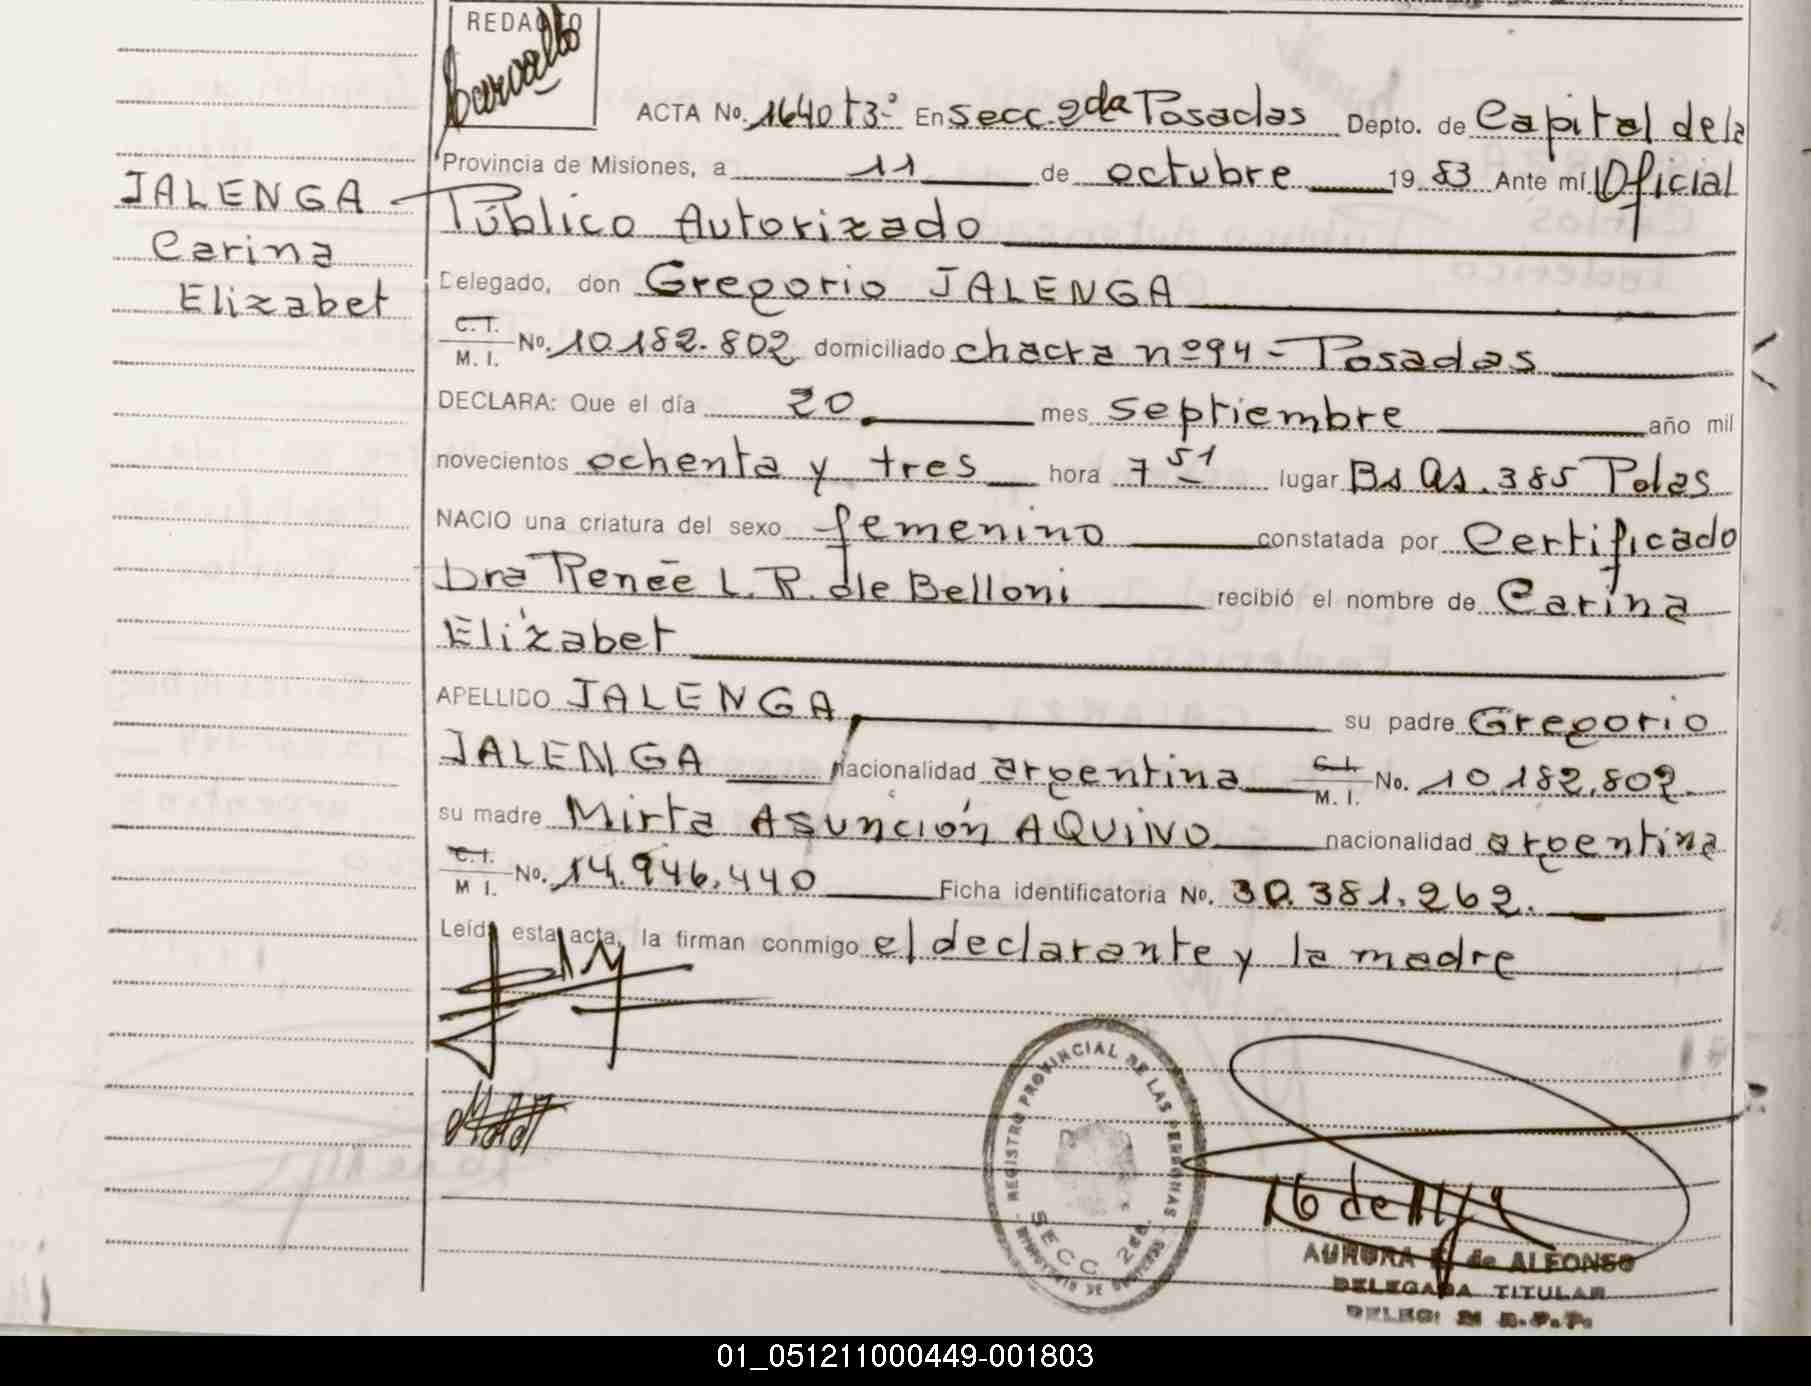 REDACTO
ACTA No. 1640 T3º En Secc. 2da Posadas Depto. de Capital de la
Provincia de Misiones, a 11 de octubre 19 83 Ante mí Oficial
JALENGA
Carina
Elizabet
Público Autorizado
Delegado, don Gregorio JALENGA
C.I. M. I. No. 10.182.802 domiciliado chacra nº 94 - Posadas
DECLARA: Que el día 20 mes septiembre año mil
novecientos ochenta y tres hora 7 51 lugar Bs As. 385 Pdas
NACIO una criatura del sexo femenino constatada por Certificado
Dra Renée L. R. de Belloni recibió el nombre de Carina
Elizabet
APELLIDO JALENGA su padre Gregorio
JALENGA nacionalidad argentina C.I. M. I. No. 10.182.802
su madre Mirta Asunción AQUINO nacionalidad argentina
C.I. M I. No. 14.946.440 Ficha identificatoria No. 30.381.262.
Leída esta acta, la firman conmigo el declarante y la madre
REGISTRO PROVINCIAL DE LAS PERSONAS
SECC. 2da.
AURORA de ALFONSO
DELEGADA TITULAR
01_051211000449-001803